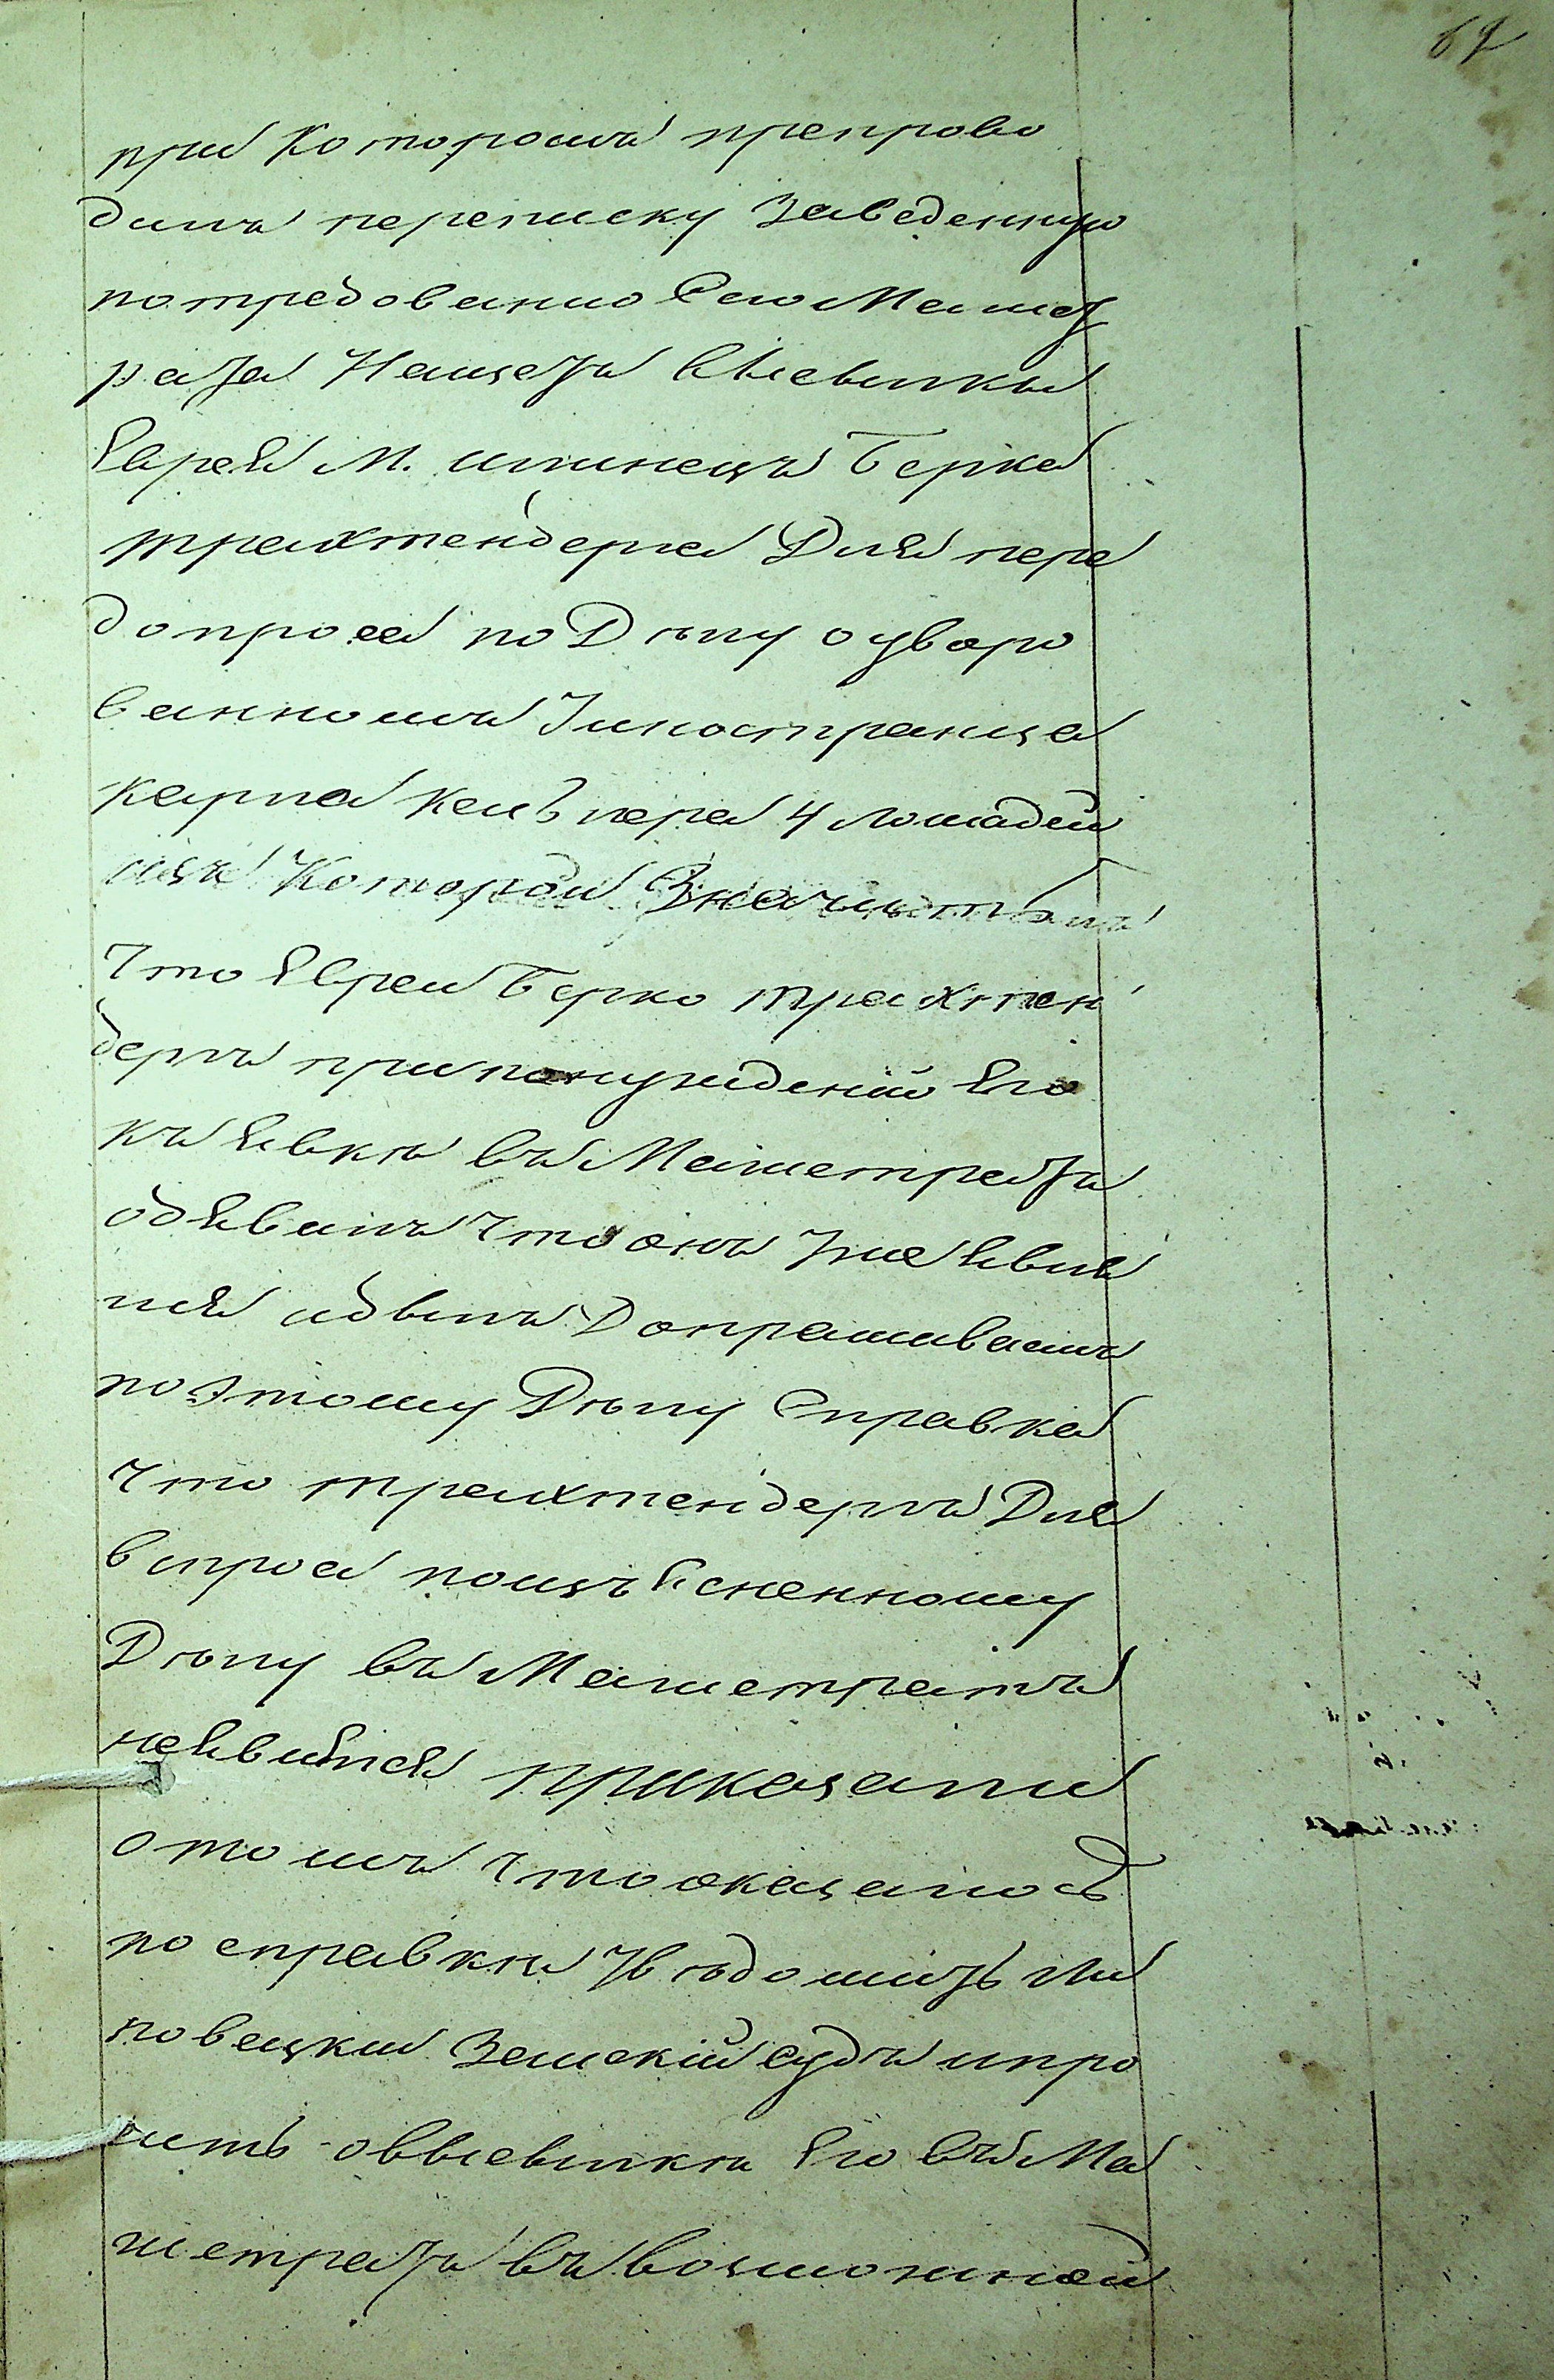 69
при Которомъ препрово
дилъ переписку Заведенную
потребованию Сего Магист
рата Насчетъ Высылки
Еврея М. Илинецъ Берка
трахтенберга Для пере
допроса по Дѣлу о уворо
ванномъ Іиностранца
карла 4 лошадей
изъ Которой Значитъ
Что Еврей Берко трахтен
бергъ припонужденіи Его
къ Явкѣ въ Магистратъ
объявилъ что онъ уже Явил
ся и былъ Допрашиванъ
поэтому Дѣлу Справка
Что трахтенбергъ Для
впроса поизъясненному
Дѣлу въ Магистратъ
неявился приказали
отомъ что оказалось
по справкѣ Увѣдомить Ли
повецкий Земскій судъ ипро
сить овысылкѣ Его въ Ма
гистратъ въ возможной